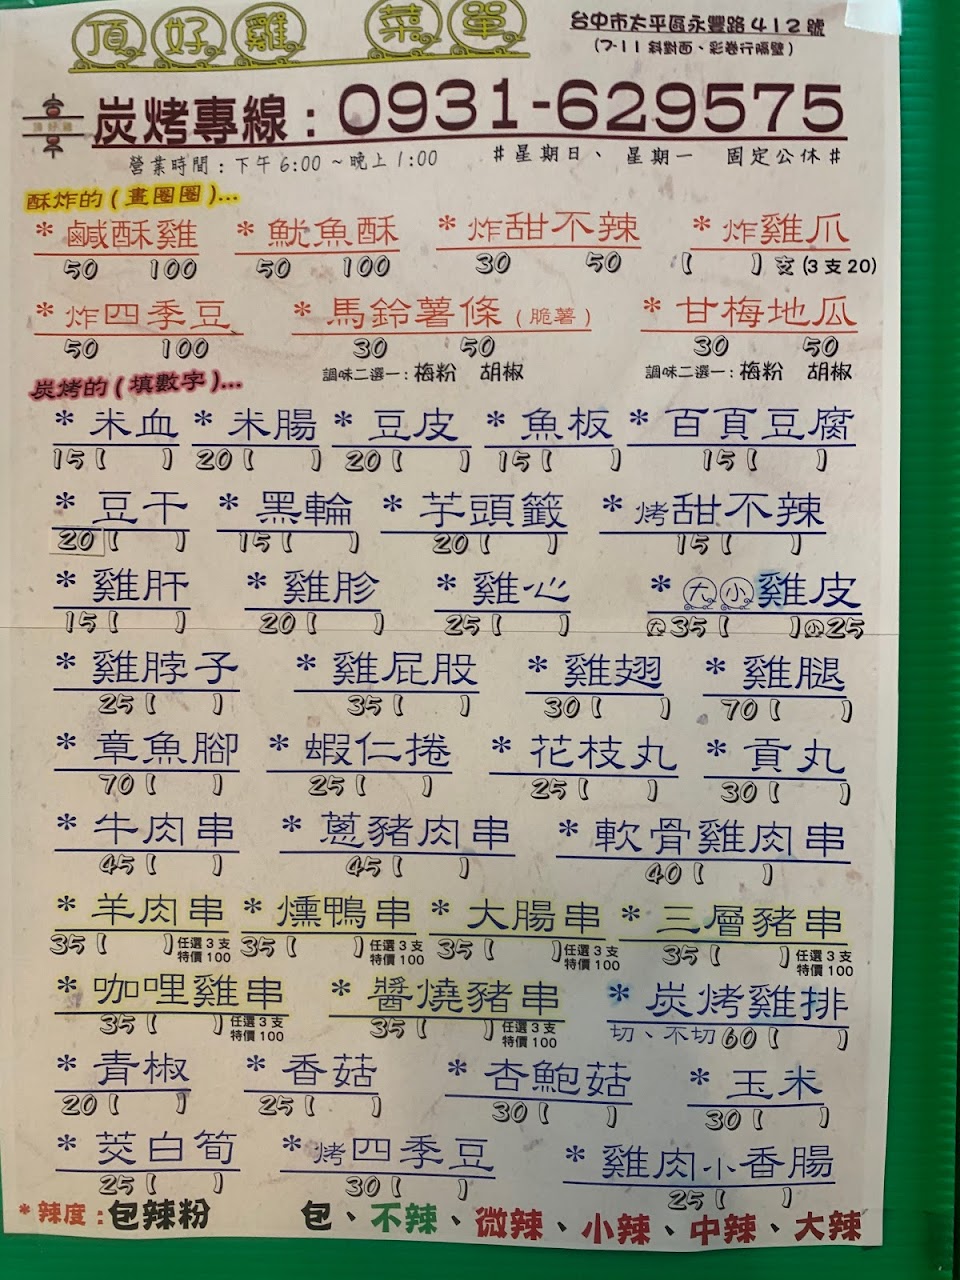 頂好雞 菜單
台中市太平區永豐路412號
(7-11斜對面、彩卷行隔壁)
炭烤專線:0931-629575
營業時間:下午6:00~晚上1:00 #星期日、星期一 固定公休#
酥炸的(畫圈圈)...
*鹹酥雞 *魷魚酥 *炸甜不辣 *炸雞爪
50 100 50 100 30 50 ( )支(3支20)
*炸四季豆 *馬鈴薯條(脆薯) *甘梅地瓜
50 100 30 50 30 50
調味二選一:梅粉 胡椒 調味二選一:梅粉 胡椒
炭烤的(填數字)...
*米血 *米腸 *豆皮 *魚板 *百頁豆腐
15( ) 20( ) 20( ) 15( ) 15( )
*豆干 *黑輪 *芋頭籤 *烤甜不辣
20( ) 15( ) 20( ) 15( )
*雞肝 *雞胗 *雞心 *大小雞皮
15( ) 20( ) 25( ) 大35( )小25
*雞脖子 *雞屁股 *雞翅 *雞腿
25( ) 35( ) 30( ) 70( )
*章魚腳 *蝦仁捲 *花枝丸 *貢丸
70( ) 25( ) 25( ) 30( )
*牛肉串 *蔥豬肉串 *軟骨雞肉串
45( ) 45( ) 40( )
*羊肉串 *燻鴨串 *大腸串 *三層豬串
35( )任選3支 35( )任選3支 35( )任選3支 35( )任選3支
特價100 特價100 特價100 特價100
*咖哩雞串 *醬燒豬串 *炭烤雞排
35( )任選3支 35( )任選3支 切、不切60( )
特價100 特價100
*青椒 *香菇 *杏鮑菇 *玉米
20( ) 25( ) 30( ) 30( )
*茭白筍 *烤四季豆 *雞肉小香腸
25( ) 30( ) 25( )
*辣度:包辣粉 包、不辣、微辣、小辣、中辣、大辣